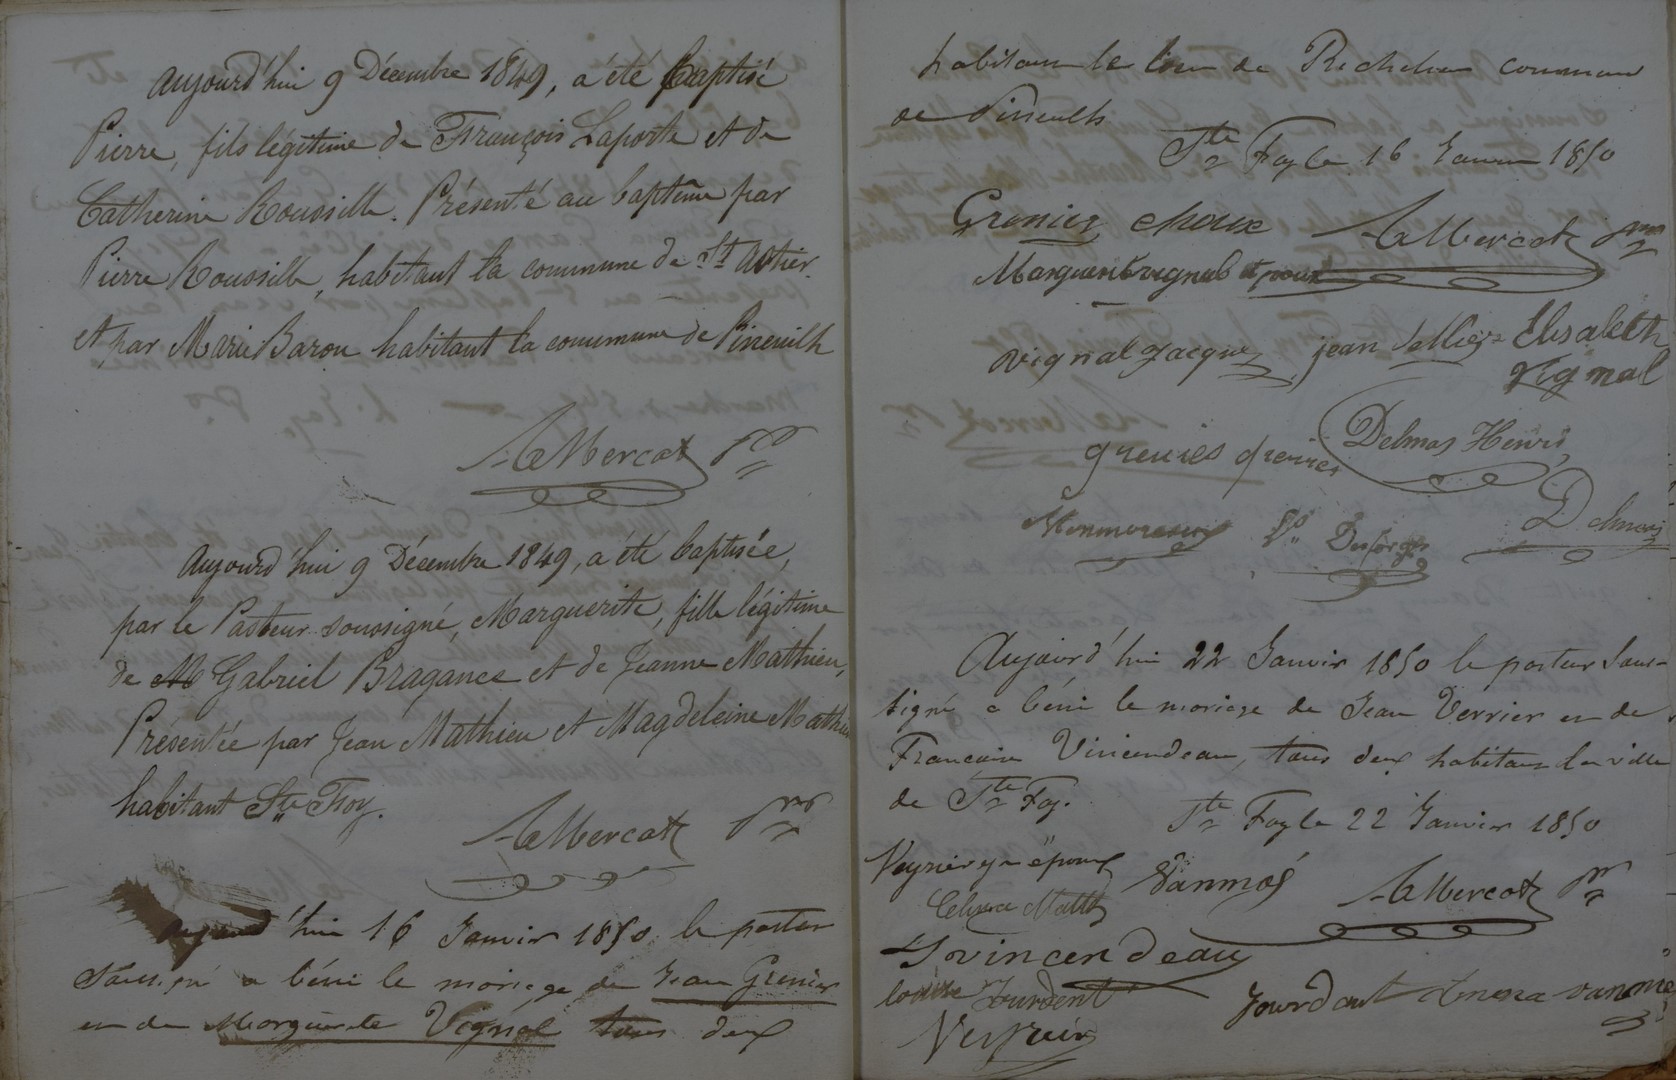 Aujourd'hui 9 Décembre 1849, a été baptisé
Pierre, fils légitime de François Laporte et de
Catherine Rousille. Présenté au baptême par
Pierre Rousille, habitant la commune de St Astier.
et par Marie Barou habitant la commune de Pineuilh
A. Mercat
Aujourd'hui 9 Décembre 1849, a été baptisée,
par le Pasteur soussigné, Marguerite, fille légitime
de M Gabriel Bragance et de Jeanne Mathieu,
Présentée par Jean Mathieu et Magdeleine Mathieu
habitant Ste Foy.
A. Mercat
Aujourd'hui 16 Janvier 1850 le pasteur
soussigné a béni le mariage de Jean Grenier
et de Marguerite Vignal tous deux
habitans le lieu de Richelieu commune
de Pineuilh
Ste Foy le 16 Janvier 1850
Grenier choux A. Mercat
Marguerite vignal épouse
vignal Jacques jean Elisabeth
Vignal
Delmas Henri
grenier
Delmas
Aujourd'hui 22 Janvier 1850 le pasteur sous-
signé a béni le mariage de Jean Verrier et de
Francoise Vincendeau, tous deux habitans la ville
de Ste Foy.
Ste Foy le 22 Janvier 1850
A. Mercat
vincendeau
louise Jourdent
Jourdant